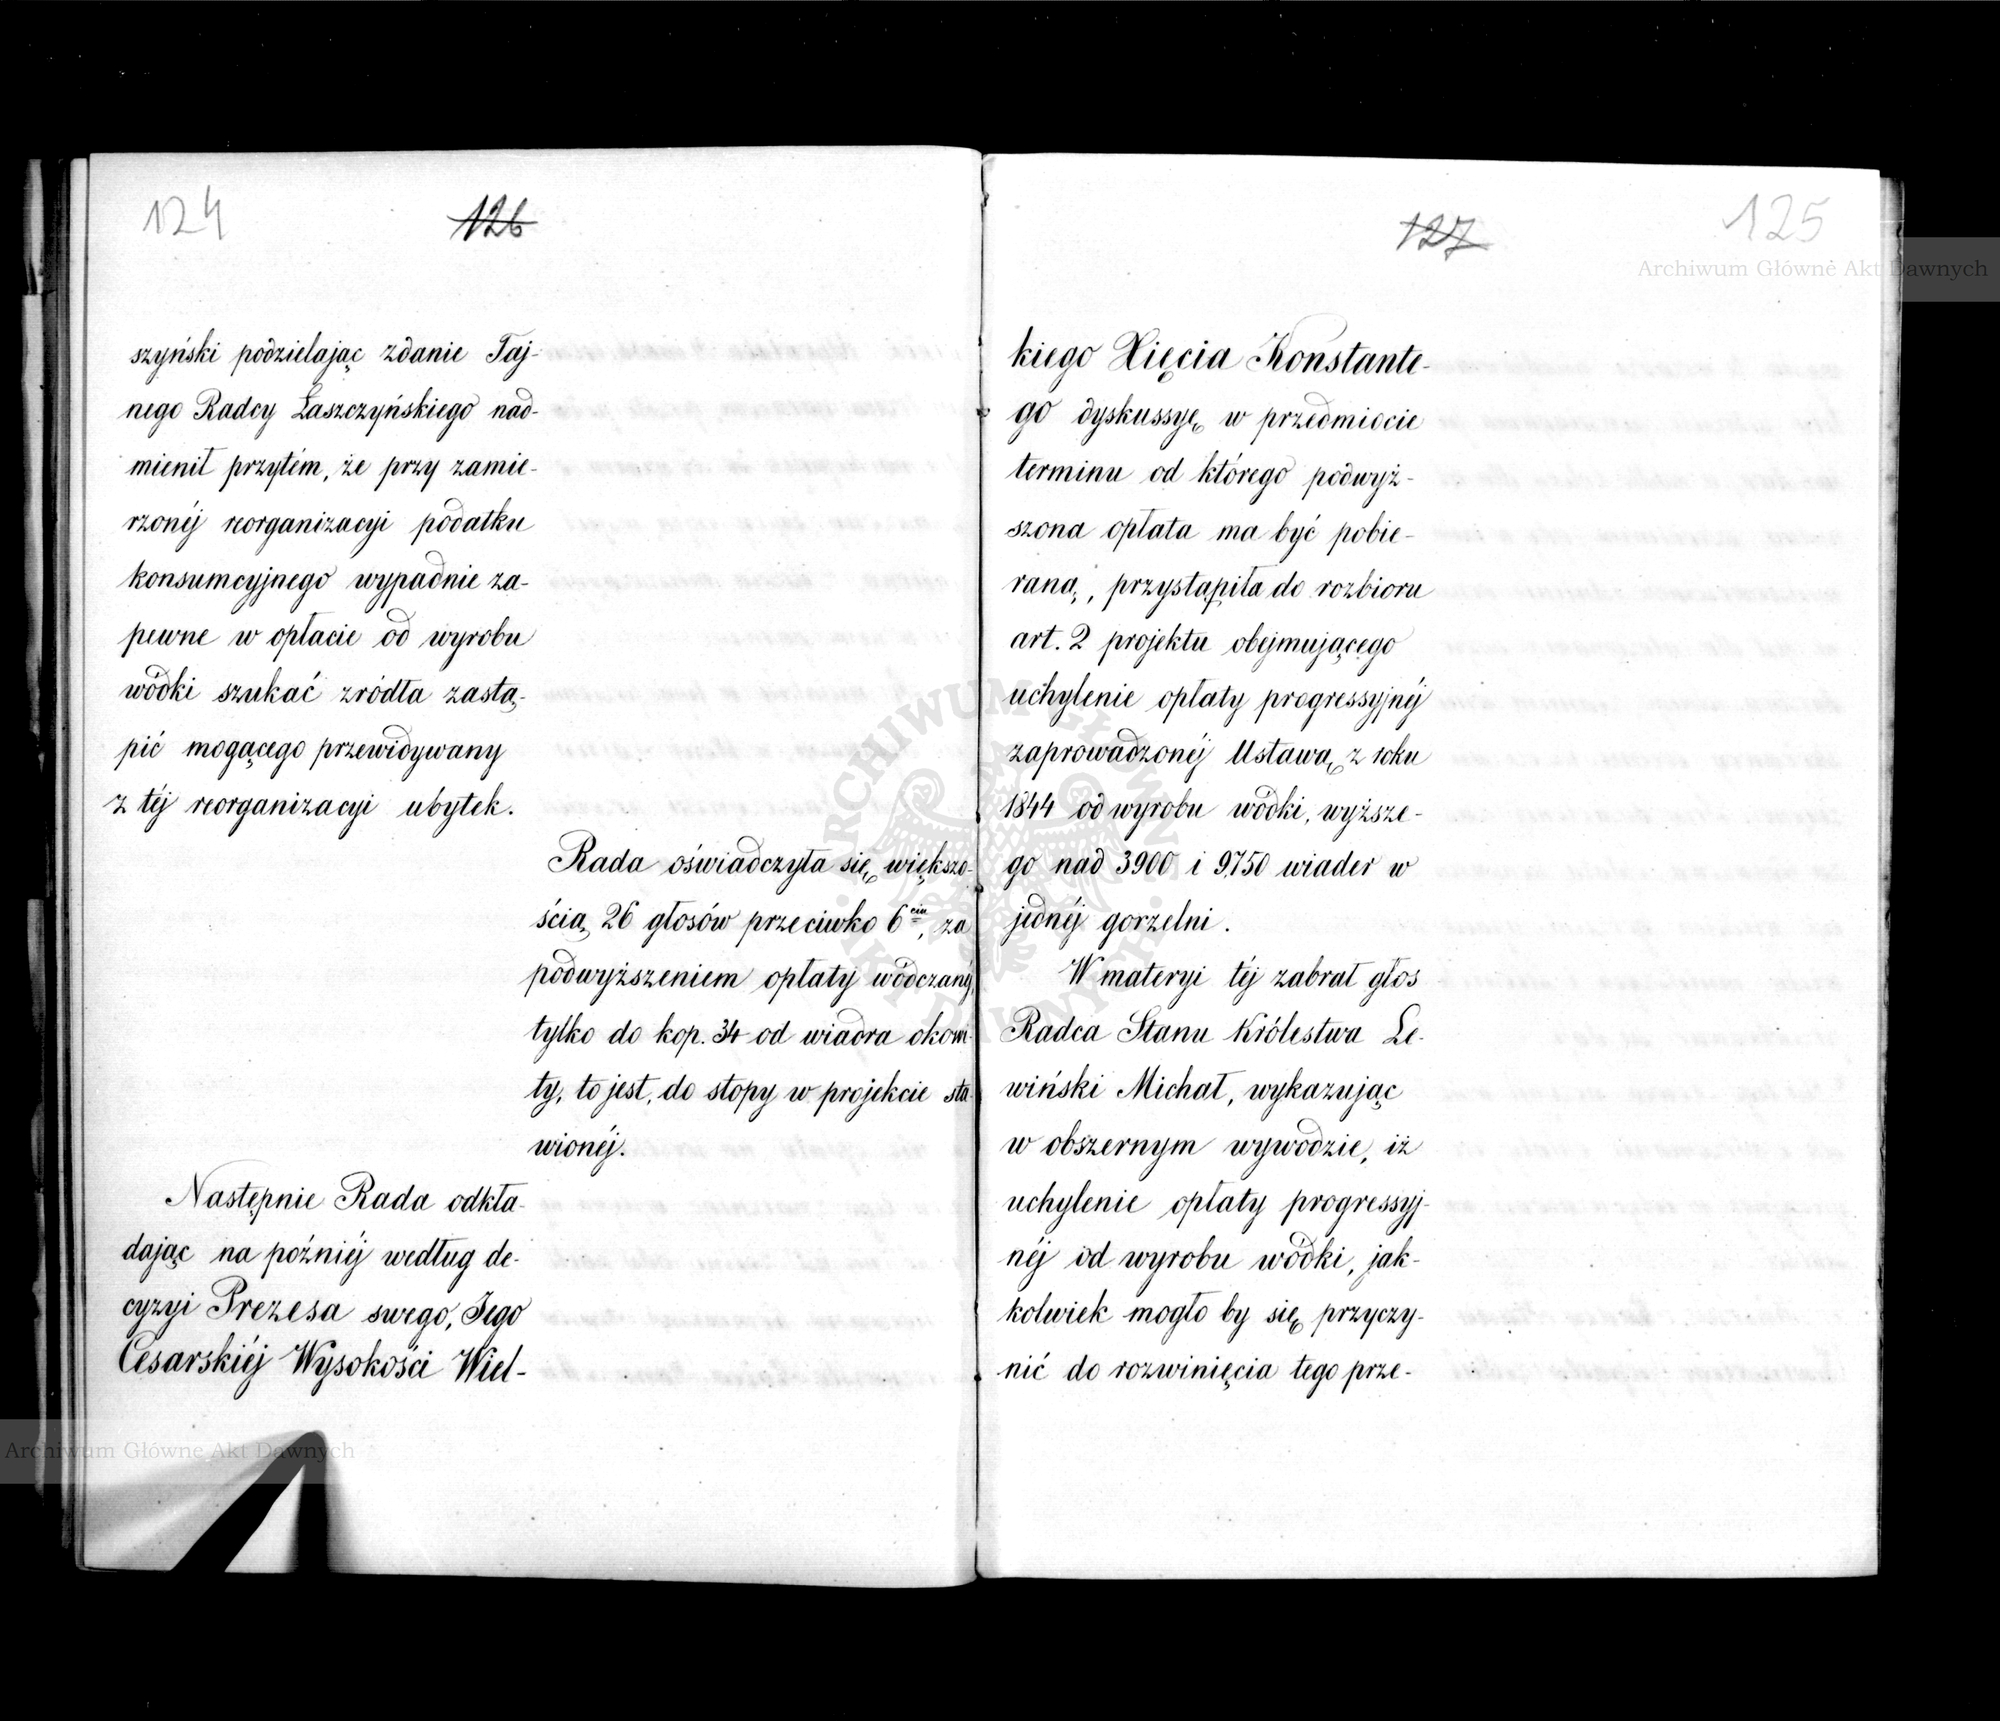 124
126
szyński podzielając zdanie Taj-
nego Radcy Łaszczyńskiego nad-
mienił przytém, że przy zamie-
rzonéj reorganizacyi podatku
konsumcyjnego wypadnie za-
pewne w opłacie od wyrobu
wódki szukać zródła zastą-
pić mogącego przewidywany
z téj reorganizacyi ubytek.
Rada oświadczyła się większo-
ścią 26 głosów przeciwko 6ciu, za
podwyższeniem opłaty wódczanéj,
tylko do kop. 34 od wiadra okowi-
ty, to jest, do stopy w projekcie sta-
wionéj.
Następnie Rada odkła-
dając na poźniéj według de-
cyzyi Prezesa swego, Jego
Cesarskiéj Wysokości Wiel-
127
125
kiego Xięcia Konstante-
go dyskussyę w przedmiocie
terminu od którego podwyż-
szona opłata ma być pobie-
raną, przystąpiła do rozbioru
art. 2 projektu obejmującego
uchylenie opłaty progressyjnéj
zaprowadzonéj Ustawą z roku
1844 od wyrobu wódki, wyższe-
go nad 3900 i 9750 wiader w
jednéj gorzelni.
W materyi téj zabrał głos
Radca Stanu Królestwa Le-
wiński Michał, wykazując
w obszernym wywodzie, iż
uchylenie opłaty progressyj-
néj od wyrobu wódki, jak-
kolwiek mogło by się przyczy-
nić do rozwinięcia tego prze-
Archiwum Główne Akt Dawnych
Archiwum Główne Akt Dawnych
ARCHIWUM GŁÓWNE AKT DAWNYCH